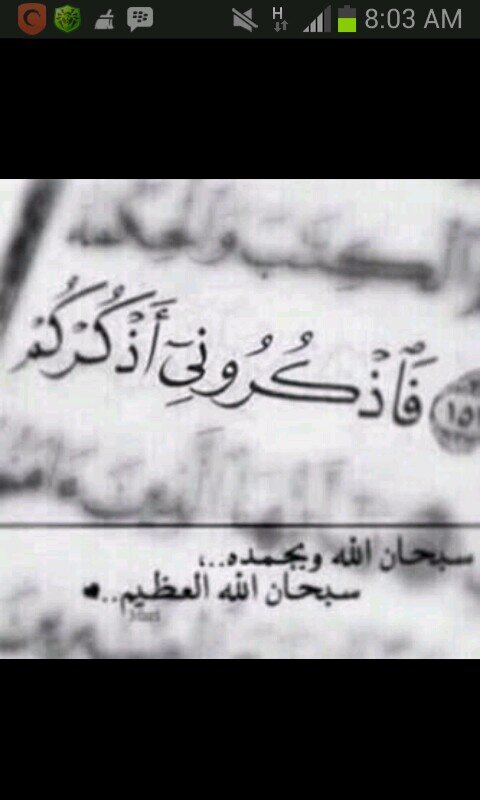 8:03 AM
H
الكتب والحكمة
١٥١
فَاذْكُرُونِيٓ أَذْكُرْكُمْ
سبحان الله وبحمده..،
سبحان الله العظيم..♥